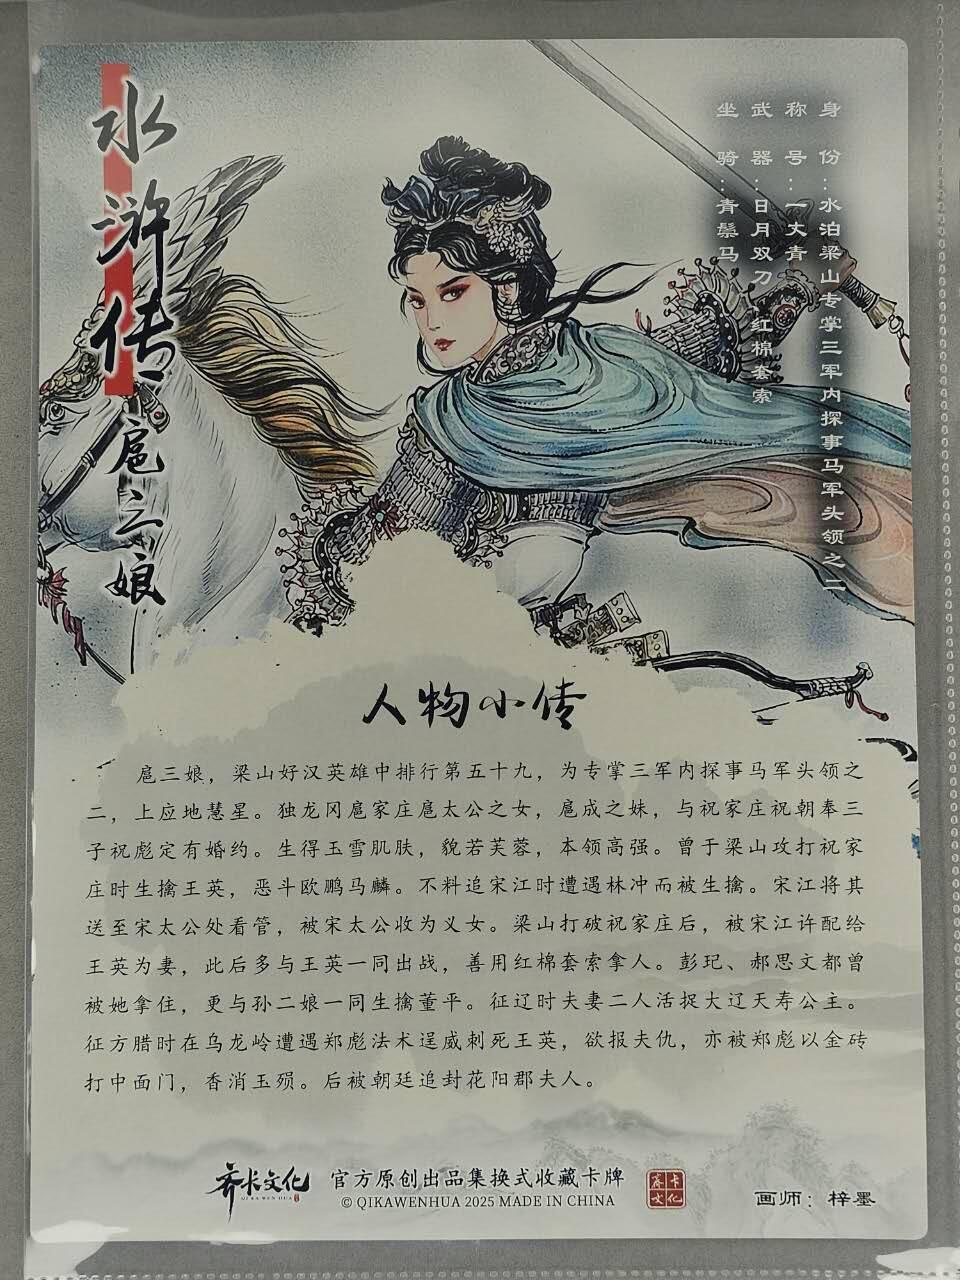 水浒传
扈三娘
身份：水泊梁山专掌三军内探事马军头领之二
称号：一丈青
武器：日月双刀、红棉套索
坐骑：青鬃马
人物小传
扈三娘，梁山好汉英雄中排行第五十九，为专掌三军内探事马军头领之
二，上应地慧星。独龙冈扈家庄扈太公之女，扈成之妹，与祝家庄祝朝奉三
子祝彪定有婚约。生得玉雪肌肤，貌若芙蓉，本领高强。曾于梁山攻打祝家
庄时生擒王英，恶斗欧鹏马麟。不料追宋江时遭遇林冲而被生擒。宋江将其
送至宋太公处看管，被宋太公收为义女。梁山打破祝家庄后，被宋江许配给
王英为妻，此后多与王英一同出战，善用红棉套索拿人。彭玘、郝思文都曾
被她拿住，更与孙二娘一同生擒董平。征辽时夫妻二人活捉大辽天寿公主。
征方腊时在乌龙岭遭遇郑彪法术逞威刺死王英，欲报夫仇，亦被郑彪以金砖
打中面门，香消玉殒。后被朝廷追封花阳郡夫人。
齐卡文化
QI KA WEN HUA
官方原创出品集换式收藏卡牌
© QIKAWENHUA 2025 MADE IN CHINA
齐卡文化
画师：梓墨